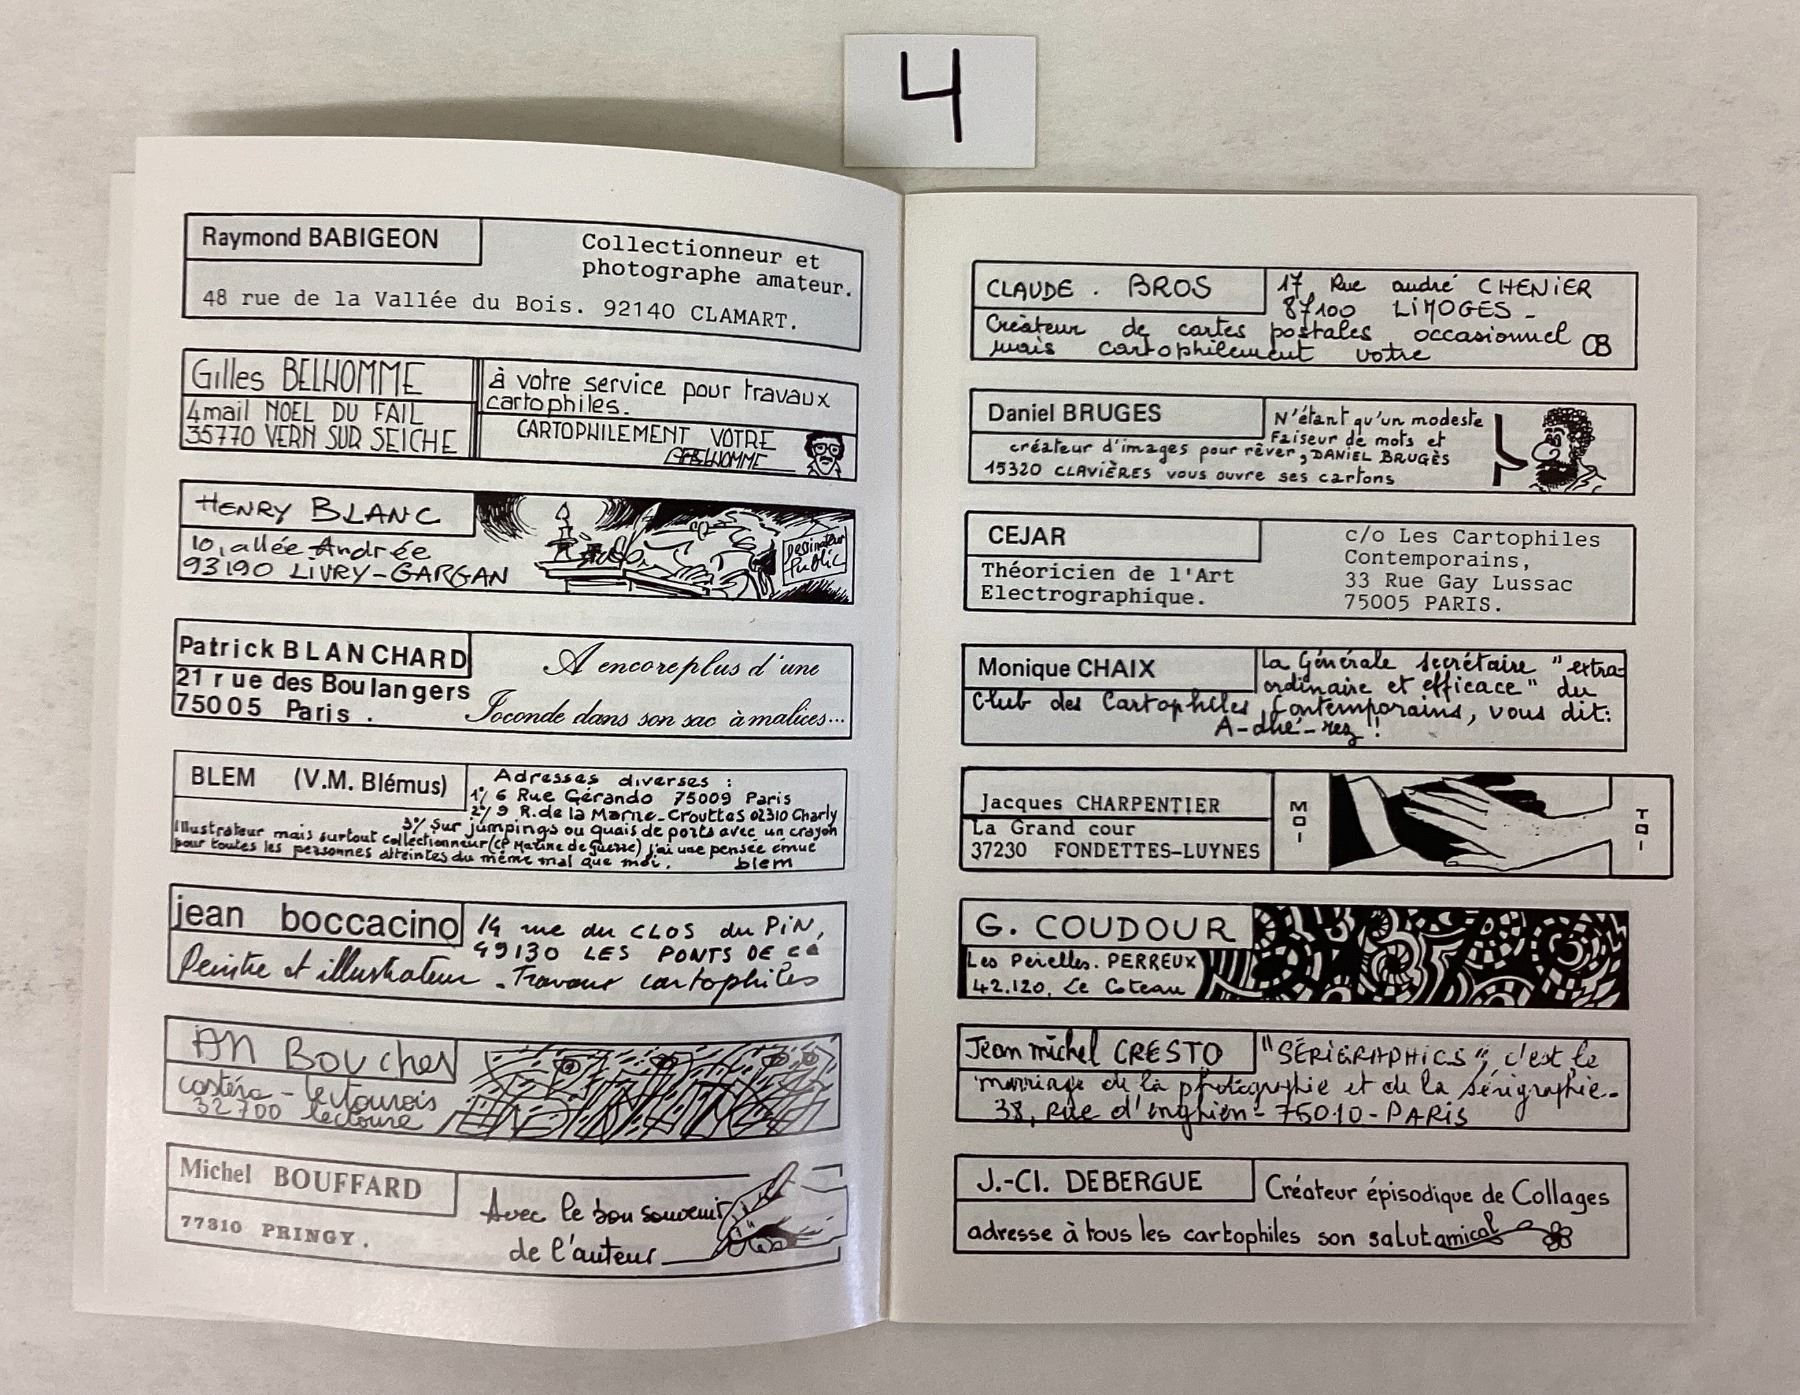 4
Raymond BABIGEON
Collectionneur et
photographe amateur.
48 rue de la Vallée du Bois. 92140 CLAMART.
Gilles BELHOMME
4 mail NOEL DU FAIL
35770 VERN SUR SEICHE
à votre service pour travaux
cartophiles.
CARTOPHILEMENT VOTRE
BELHOMME
HENRY BLANC
10, allée Andrée
93190 LIVRY-GARGAN
Dessinateur
Public
Patrick BLANCHARD
21 rue des Boulangers
75005 Paris .
A encore plus d'une
Joconde dans son sac à malices...
BLEM (V.M. Blémus)
Adresses diverses :
1°/ 6 Rue Gérando 75009 Paris
2°/ 9 R. de la Marne_Crouttes 02310 Charly
3°/ Sur jumpings ou quais de ports avec un crayon
Illustrateur mais surtout collectionneur (CP Marine de Guerre) j'ai une pensée émue
pour toutes les personnes atteintes du même mal que moi. blem
jean boccacino
14 rue du CLOS du PiN,
49130 LES PONTS DE Cé
Peintre et illustrateur - Travaux cartophiles
AN Boucher
castéra - lectourois
32700 lectoure
Michel BOUFFARD
77310 PRINGY.
Avec le bon souvenir
de l'auteur
CLAUDE . BROS
17, Rue andré CHENiER
87100 LiMOGES -
Créateur de cartes postales occasionnel
mais cartophilement votre CB
Daniel BRUGES
N'étant qu'un modeste
faiseur de mots et
créateur d'images pour rêver, DANIEL BRUGÈS
15320 CLAVIÈRES vous ouvre ses cartons
CEJAR
Théoricien de l'Art
Electrographique.
c/o Les Cartophiles
Contemporains,
33 Rue Gay Lussac
75005 PARIS.
Monique CHAIX
La Générale Secrétaire "extra-
ordinaire et efficace" du
Club des Cartophiles Contemporains, vous dit:
A-dhé-rez !
Jacques CHARPENTIER
La Grand cour
37230 FONDETTES-LUYNES
MOI
TOI
G. COUDOUR
Les Peirelles. PERREUX
42.120. Le Coteau
Jean michel CRESTO
"SÉRiGRAPHiCS", c'est le
marriage de la photographie et de la sérigraphie..
38, Rue d'enghien - 75010 - PARiS
J.-Cl. DEBERGUE
Créateur épisodique de Collages
adresse à tous les cartophiles son salut amical